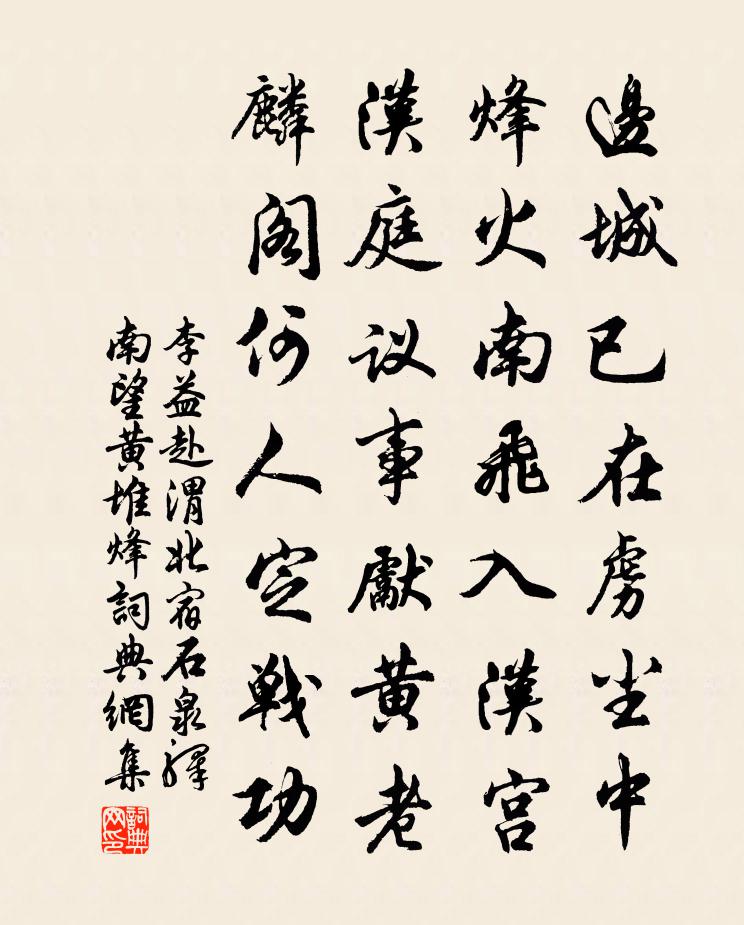 邊城已在虜尘中
烽火南飛入漢宮
漢庭议事獻黃老
麟閣何人定戰功
李益赴渭北宿石泉驛
南望黃堆烽詞典網集
詞典
网印